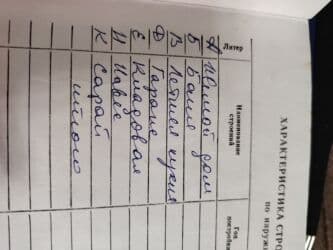 ХАРАКТЕРИСТИКА СТРО
по наруж
Литер
Наименование
строений
Год
постройк
А Жилой дом
Б Баня
В Летняя кухня
Д Гараж
Е Кладовая
И Навес
К Сарай